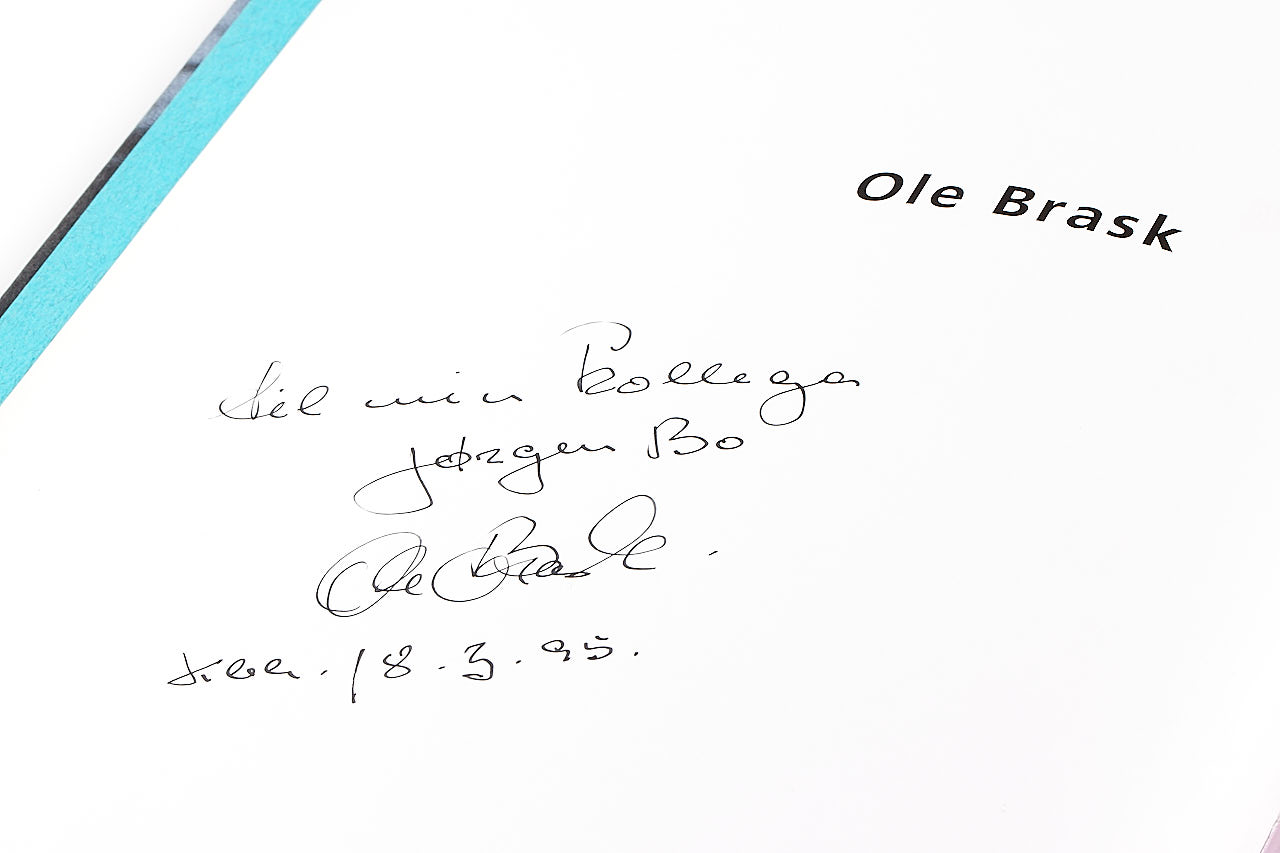 Ole Brask
til min kollega
Jørgen Bo
Ole Brask.
Kbh. 18.3.95.